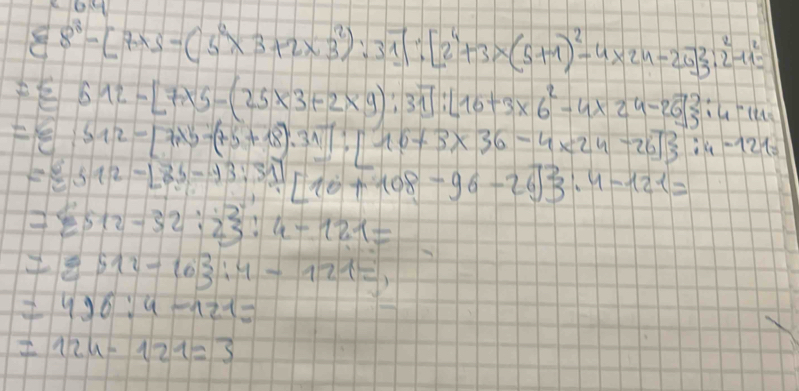 { 8³ - [7×5 - (5²×3+2×3²) : 31] : [2⁴+3×(5+1)²-4×24-26]} : 2²-11²=
= { 512 - [7×5-(25×3+2×9) : 31] : [16+3×6²-4×24-26]} : 4-
= { 512 - [7×5-(75+18) : 31] : [16+3×36-4×24-26]} : 4-121=
= { 512 - [35-93:31] [16+108-96-26]} : 4-121=
= {512-32 : 2} : 4-121=
= { 512-16} : 4 - 121=
= 496 : 4 -121=
= 124- 121= 3